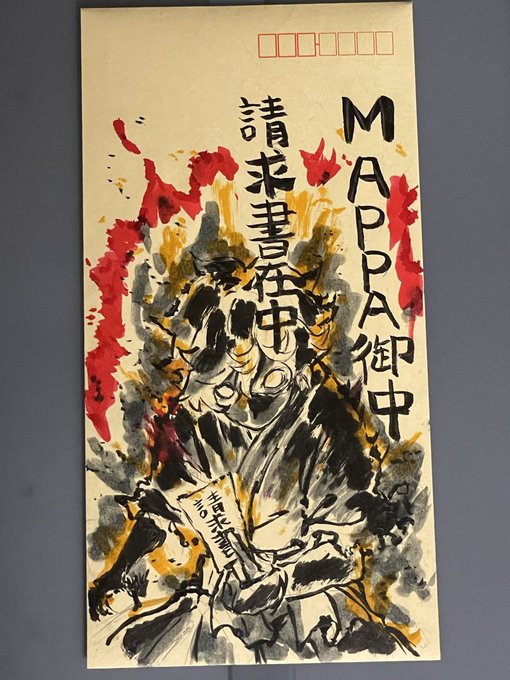 MAPPA御中
請求書在中
請求書